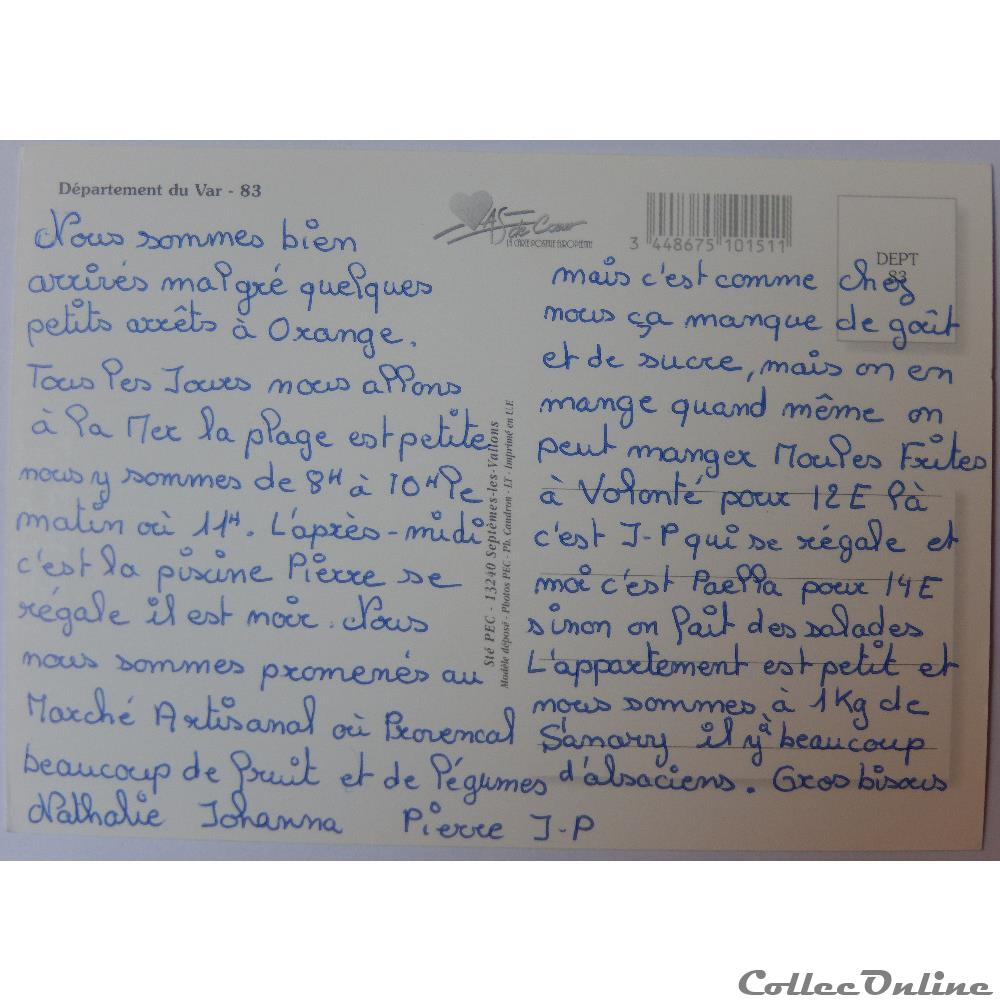 Département du Var - 83
Nous sommes bien
arrivés malgré quelques
petits arrêts à Orange.
Tous les Jours nous allons
à la Mer la plage est petite
nous y sommes de 8H à 10H le
matin où 11H. L'après-midi
c'est la piscine Pierre se
régale il est noir. Nous
nous sommes promenés au
Marché Artisanal où Provencal
beaucoup de fruit et de légumes
mais c'est comme chez
nous ça manque de goût
et de sucre, mais on en
mange quand même on
peut manger Moules Frites
à Volonté pour 12E là
c'est J-P qui se régale et
moi c'est Paella pour 14E
sinon on fait des salades
L'appartement est petit et
nous sommes à 1Kg de
Sanarry il y à beaucoup
d'alsaciens. Gros bisous
Nathalie Johanna Pierre J-P
AS de Cœur
LA CARTE POSTALE EUROPÉENNE
3 448675 101511
DEPT
83
Sté PEC - 13240 Septèmes-les-Vallons
Modèle déposé - Photos PEC - Ph. Caudron - LT - Imprimé en U.E
CollecOnline